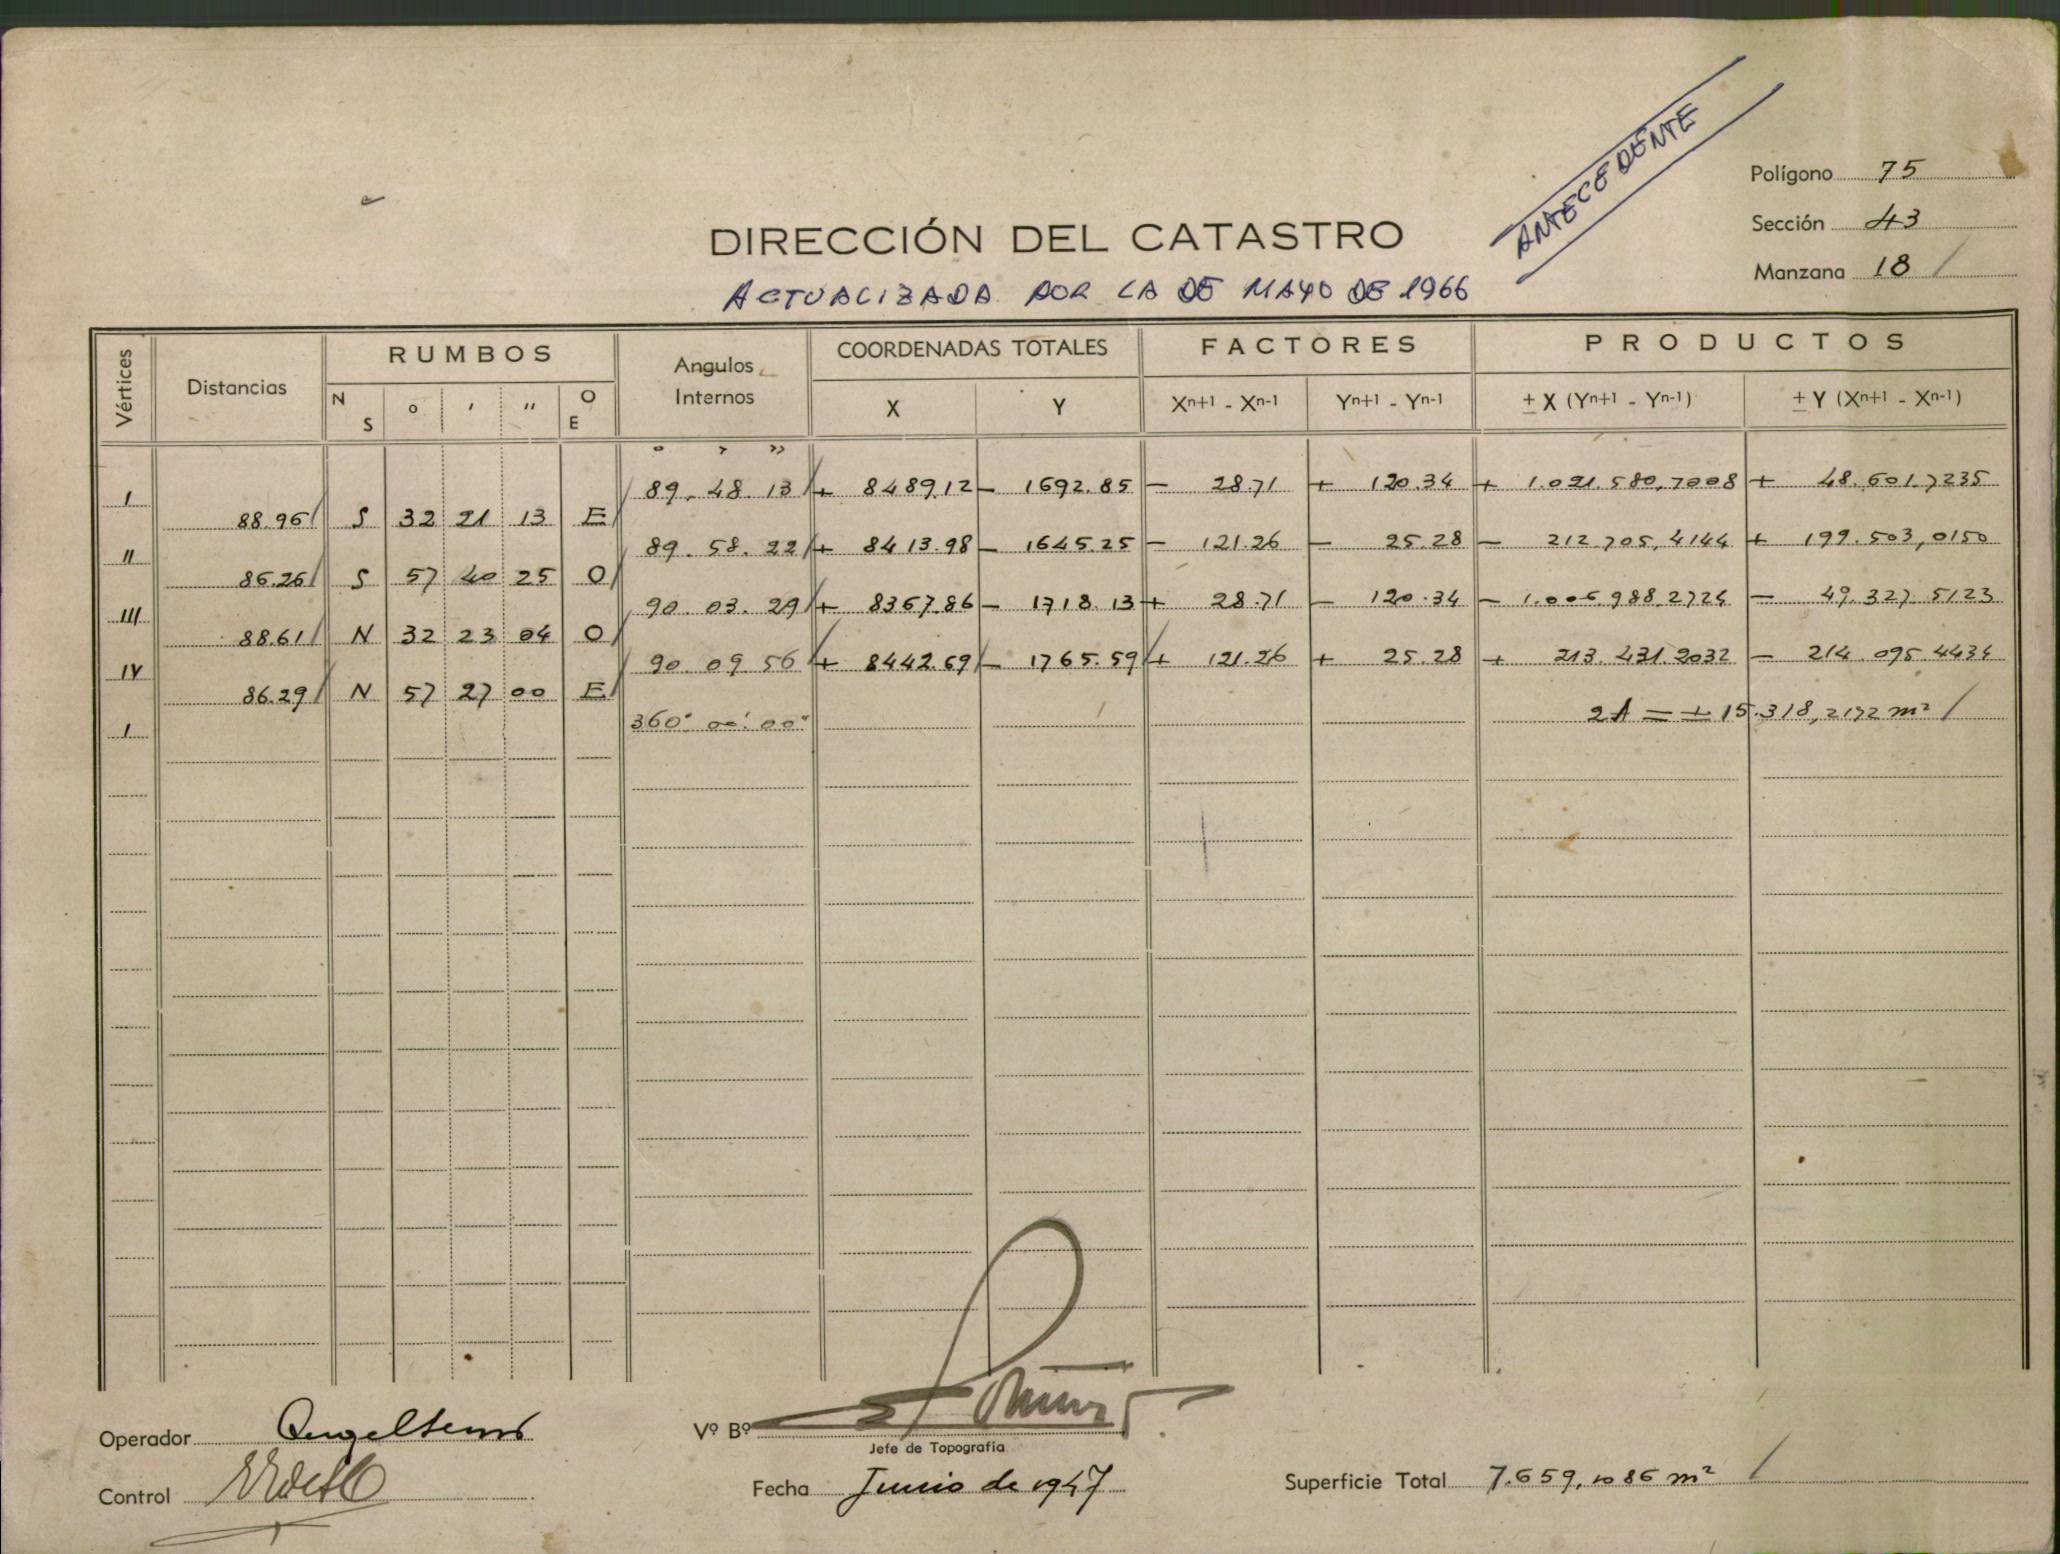 ANTECEDENTE
Polígono 75
Sección 43
Manzana 18
DIRECCIÓN DEL CATASTRO
ACTUALIZADA POR LA DE MAYO DE 1966
Vértices Distancias RUMBOS Angulos Internos COORDENADAS TOTALES FACTORES PRODUCTOS
N S o ' " O E X Y Xn+1 - Xn-1 Yn+1 - Yn-1 ± X (Yn+1 - Yn-1) ± Y (Xn+1 - Xn-1)
I 89. 48. 13 + 8489,12 - 1692.85 - 28.71 + 120.34 + 1.021.580,7008 + 48.601.7235
88.96 S 32 21 13 E
II 89. 58. 22 + 8413.98 - 1645.25 - 121.26 - 25.28 - 212.705,4144 + 199.503,0150
86.26 S 57 40 25 O
III 90. 03. 29 + 8367.86 - 1718.13 + 28.71 - 120.34 - 1.006.988.2724 - 49.327.5123
88.61 N 32 23 04 O
IV 90. 09 56 + 8442.69 - 1765.59 + 121.26 + 25.28 + 213.431.2032 - 214.095.4434
86.29 N 57 27 00 E
I 360° 00' 00" 2A = + 15.318,2172 m²
Operador
Vº Bº
Jefe de Topografía
Control
Fecha Junio de 1947
Superficie Total 7.659,1086 m²